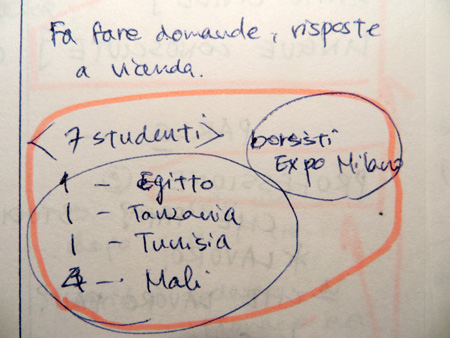 Fa fare domande, risposte
a vicenda.
< 7 studenti > borsisti
Expo Milano
1 - Egitto
1 - Tanzania
1 - Tunisia
4 - Mali